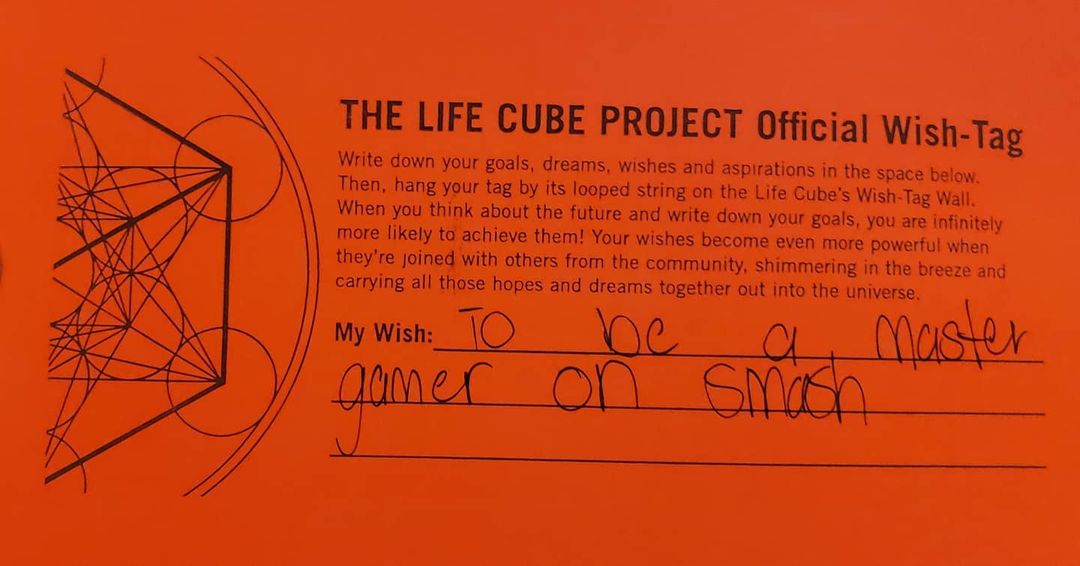 THE LIFE CUBE PROJECT Official Wish-Tag
Write down your goals, dreams, wishes and aspirations in the space below.
Then, hang your tag by its looped string on the Life Cube's Wish-Tag Wall.
When you think about the future and write down your goals, you are infinitely
more likely to achieve them! Your wishes become even more powerful when
they're joined with others from the community, shimmering in the breeze and
carrying all those hopes and dreams together out into the universe.
My Wish: To be a master
gamer on smash